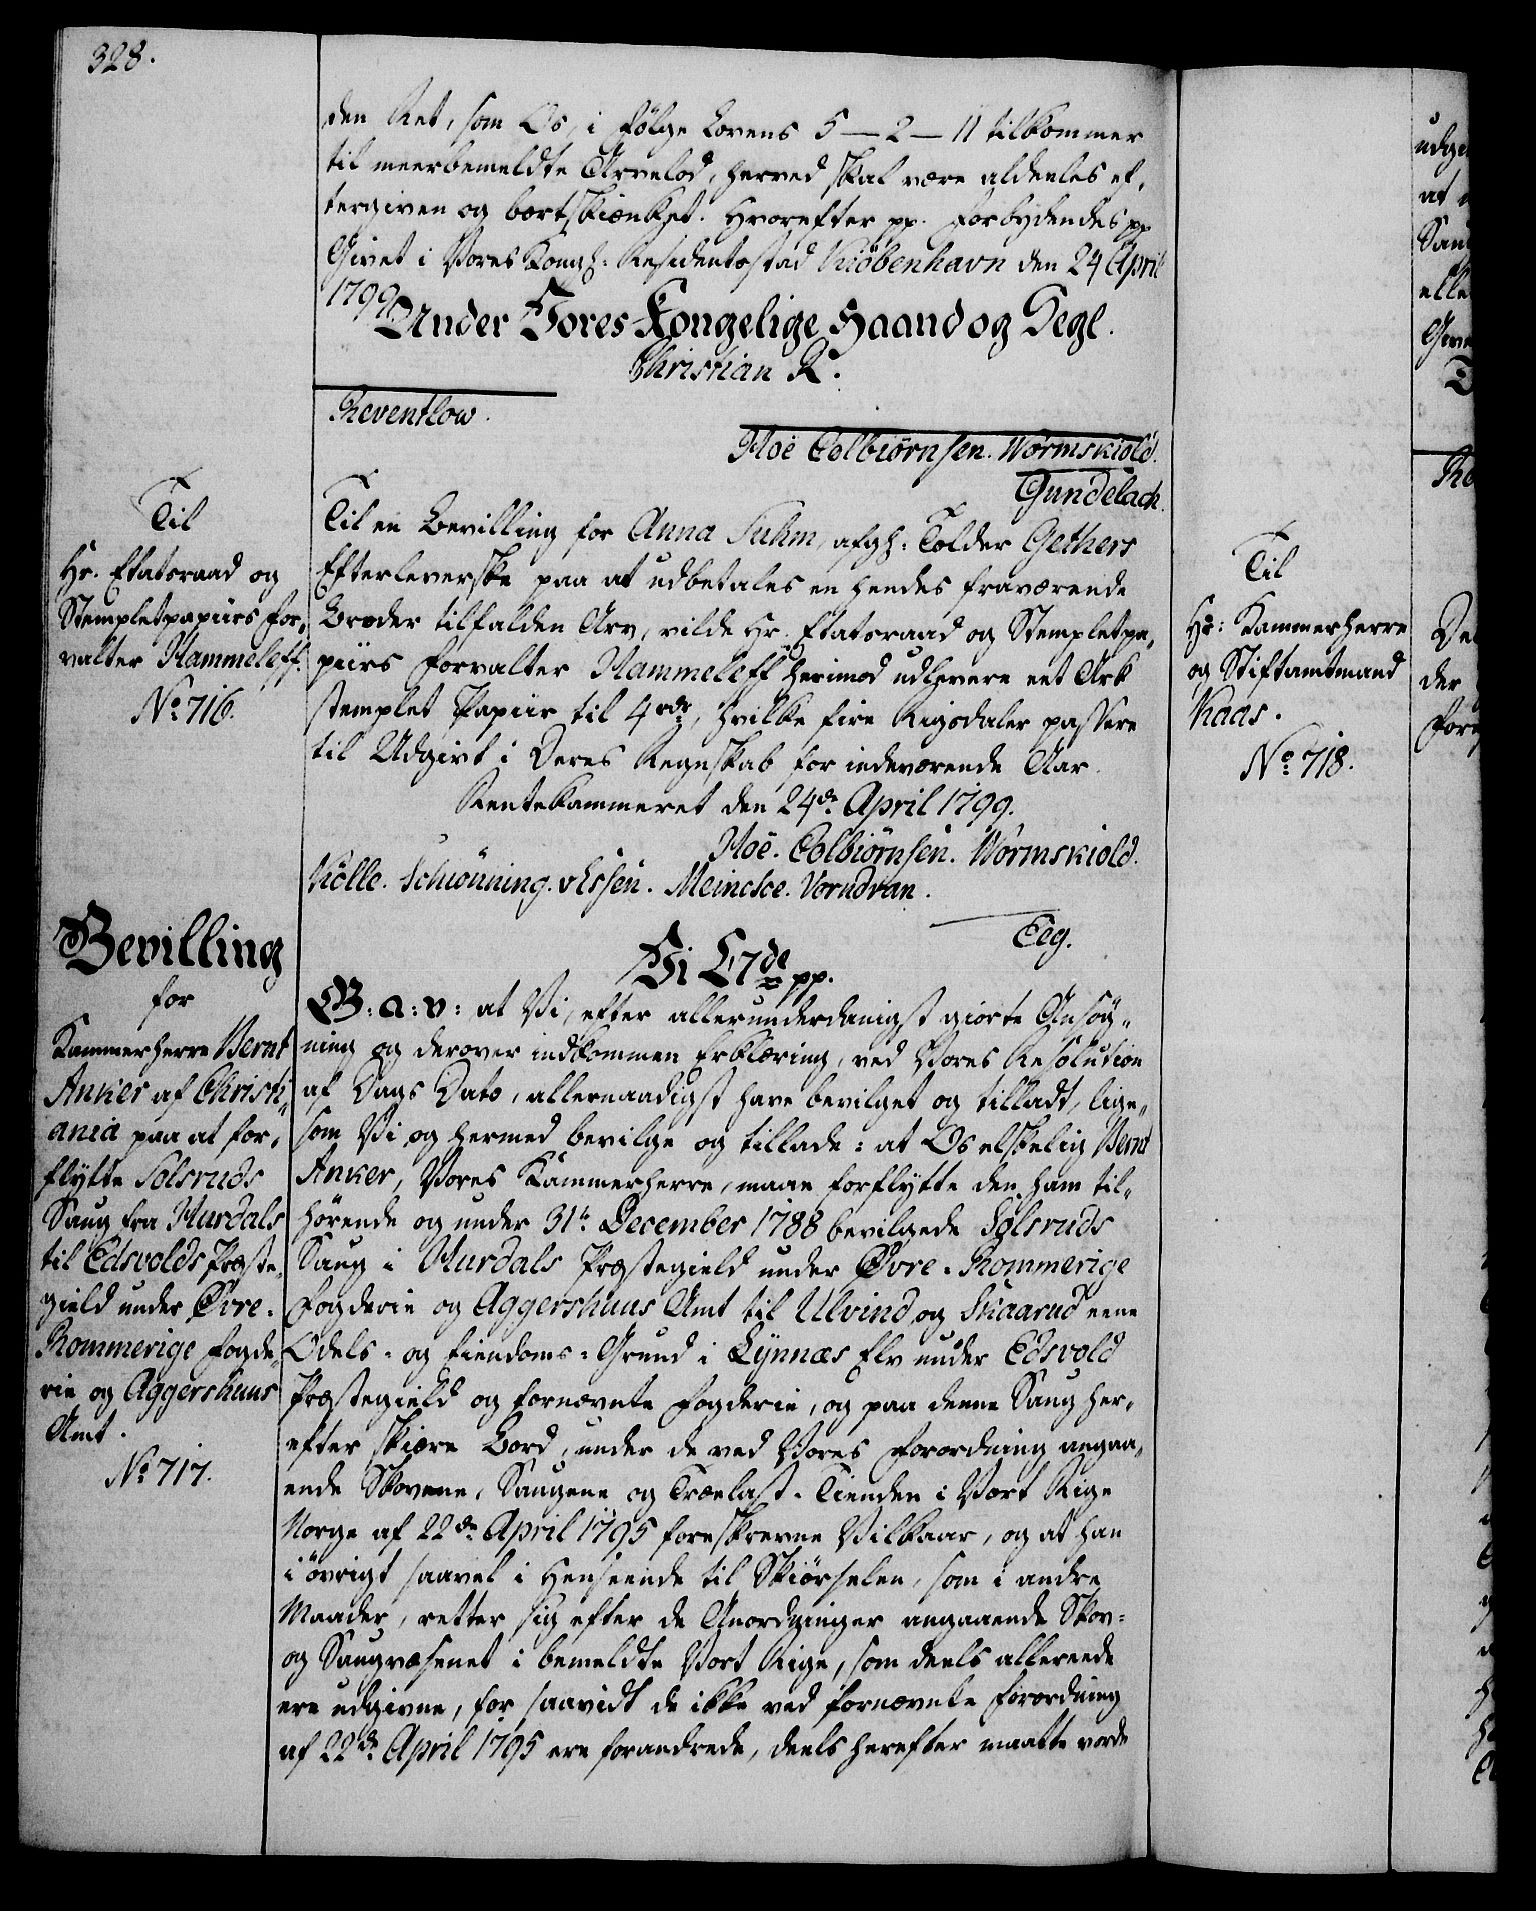 328.
den Ret, som Os, i Følge Lovens 5 — 2 — 11 tilkommer
til meerbemeldte Arvelod, herved skal være aldeles ef„
tergiven og bortskiænket. Hvorefter pp. Forbydendes pp
Givet i Vores Kongl: Residentzstad Kiøbenhavn den 24 April
1799.
Under Vores Kongelige Haand og Segl.
Christian R.
Reventlow.
Hoë Colbiørnsen. Wormskiold.
Gundelach.
Til
Hr. Etatsraad og
Stempletpapiirs For„
valter Hammeleff.
No: 716.
Til en Bevilling for Anna Suhm, afgh: Tolder Gethers
Efterleverske paa at udbetales en hendes fraværende
Broder tilfalden Arv, vilde Hr. Etatsraad og Stempletpa„
piirs Forvalter Hammeleff herimod udlevere eet Ark
stemplet Papiir til 4 rdr, hvilke fire Rigsdaler passere
til Udgivt i Deres Regnskab for indeværende Aar.
Rentekammeret den 24de April 1799.
Hoë. Colbiørnsen. Wormskiold.
Kölle. Schwonning. v Essen. Meincke. Vorndran.
Eeg.
Bevilling
for
Kammerherre Bernt
Anker af Christi„
ania paa at for„
flytte Solsruds
Saug fra Hurdals
til Edsvolds Præste„
gield under Øvre-
Rommerige Fogde„
rie og Aggershuus
Amt.
No: 717.
Vi C 7de pp.
G: a: v: at Vi, efter allerunderdanigst giorte Ansøg„
ning og derover indkommen Erklæring, ved Vores Resolution
af Dags Dato, allernaadigst have bevilget og tilladt, lige„
som Vi og hermed bevilge og tillade: at Os elskelig Bernt
Anker, Vores Kammerherre, maae forflytte den ham til„
hørende og under 31te December 1788 bevilgede Solsruds
Saug i Hurdals Præstegield under Øvre-Rommerige
Fogderie og Aggershuus Amt til Ulvind og Skaarud eene
Odels- og Eiendoms-Grund i Lynnæs Elv under Edsvold
Præstegield og fornævnte Fogderie, og paa denne Saug her„
efter skiære Bord, under de ved Vores Forordning angaa„
ende Skovene, Saugene og Trælast-Tienden i Vort Rige
Norge af 22de April 1795 foreskrevne Vilkaar, og at han
i øvrigt saavel i Henseende til Skiørselen, som i andre
Maader, retter sig efter de Anordninger angaaende Skov-
og Saugvæsenet i bemeldte Vort Rige, som deels allereede
ere udgivne, for saavidt de ikke ved fornævnte Forordning
af 22de April 1795 ere forandrede, deels herefter maatte vorde
Til
Hr: Kammerherre
og Stiftamtmand
Kaas.
No: 718.